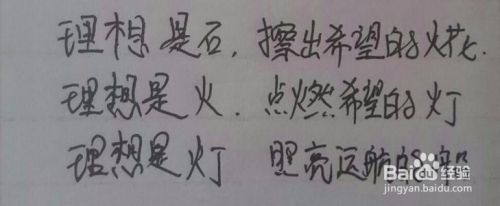 理想是石,擦出希望的火花.
理想是火.点燃希望的灯
理想是灯 照亮远航的船
Baidu经验
jingyan.baidu.com